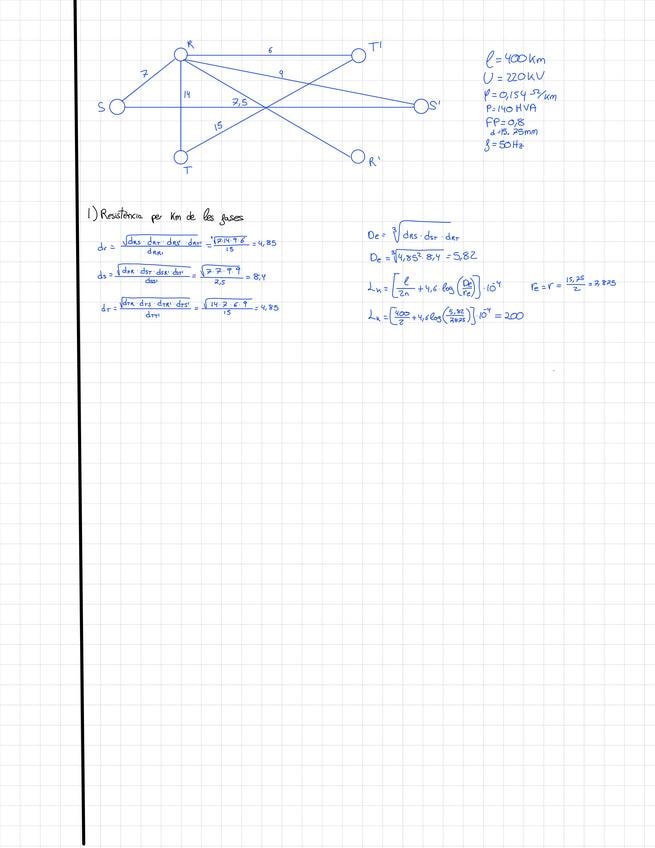 R
6
T'
7
9
14
S
7,5
S'
15
T
R'
l = 400 Km
U = 220 KV
ρ = 0,154 Ω/Km
P = 140 MVA
FP = 0,8
d = 15,75mm
f = 50 Hz
1) Resistència per Km de les fases
dr = √(dRS · dRT · dRS' · dRT') / dRR' = √(7·14·9·6) / 15 = 4,85
ds = √(dSR · dST · dSR' · dST') / dSS' = √(7·7·9·9) / 7,5 = 8,4
dT = √(dTR · dTS · dTR' · dTS') / dTT' = √(14·7·6·9) / 15 = 4,85
De = ∛(dRS · dST · dRT)
De = ∛(4,85² · 8,4) = 5,82
Lk = [l/2n + 4,6 log (De/re)] · 10⁻⁴ re = r = 15,75/2 = 7.875
Lk = [400/2 + 4,6 log (5,82/7.875)] · 10⁻⁴ = 200